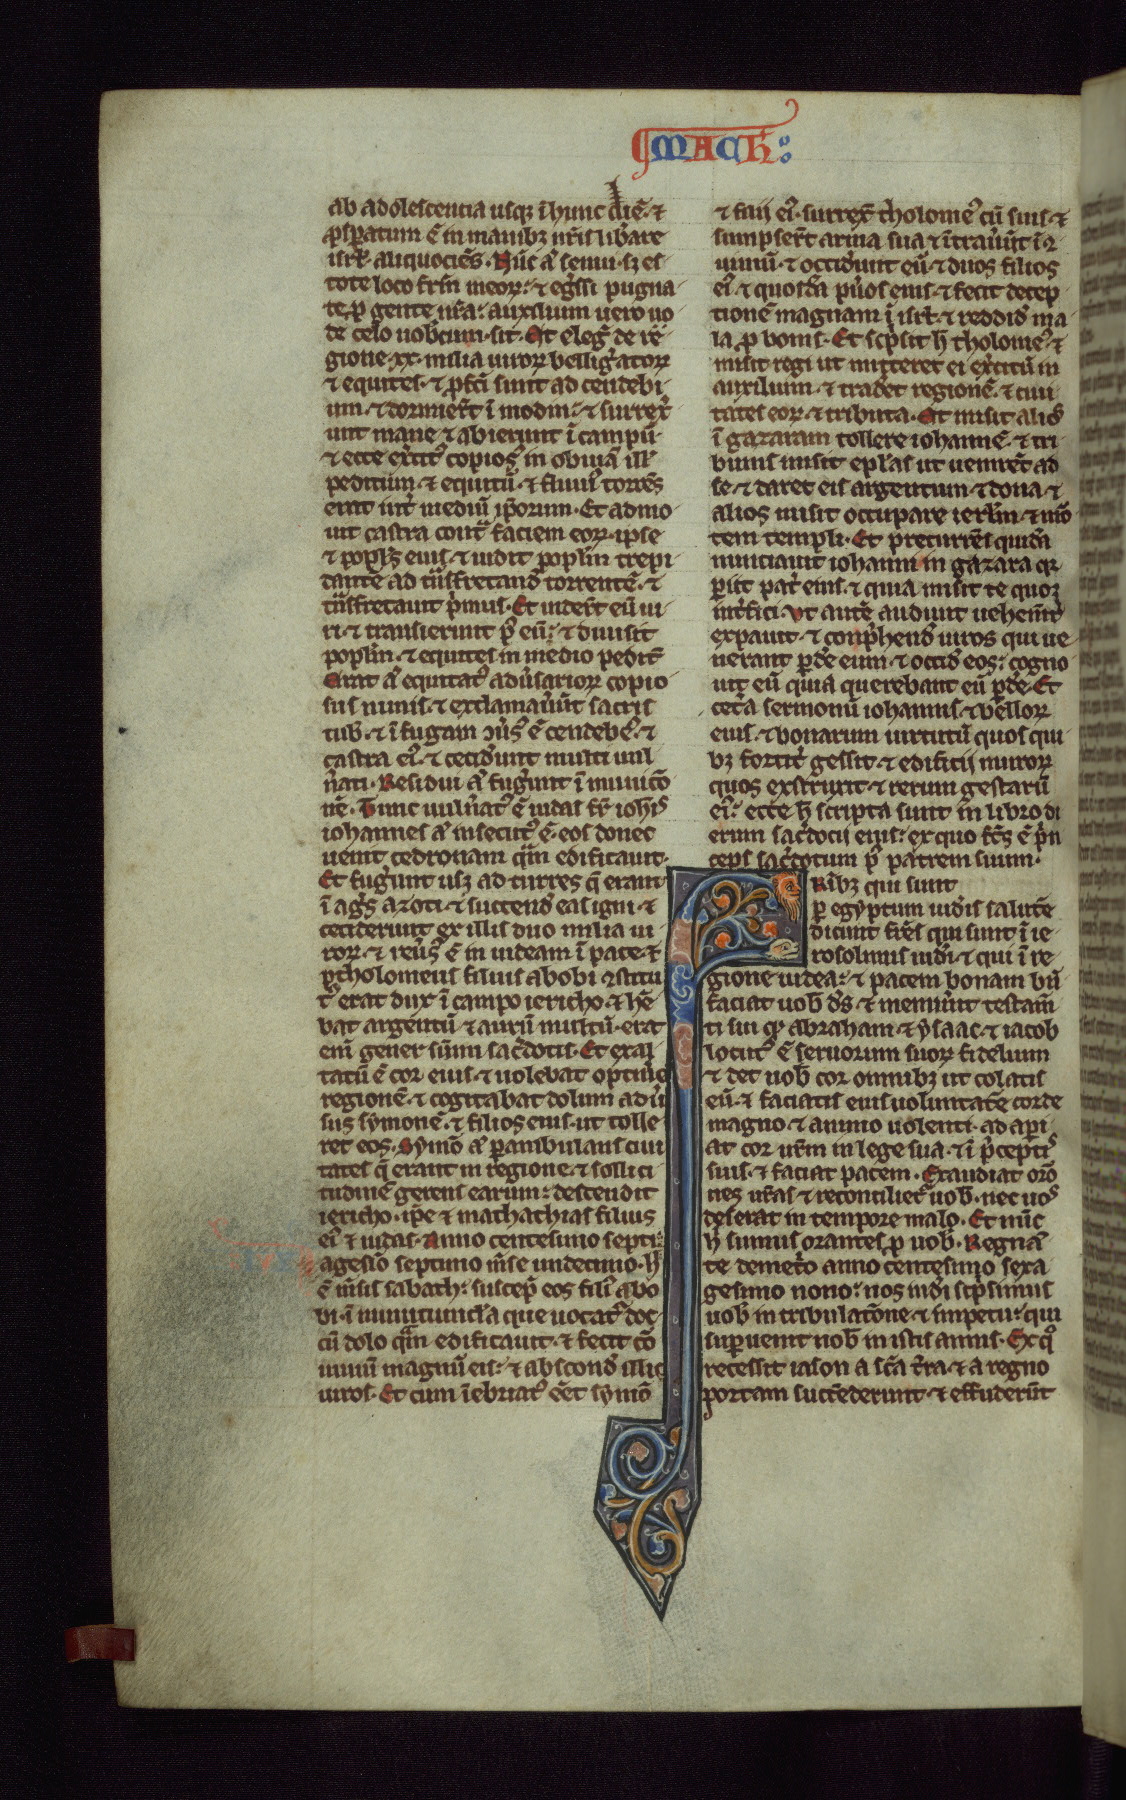 MACH
ab adolescencia usq; ī hunc diē· ⁊
ꝓsꝑatum ē in manibꝫ nr̄is lib̾are
isrl̄· aliquociēs· Nūc a͛ senui· sꝫ es
tote loco fr̄m meoꝝ· ⁊ eg̾ssi pugna
te ꝓ gente nr̄a· auxilium uero uo
de celo uobcum sit· Et eleg̾ de re
gione xx· milia uiroꝝ bellig̾atoꝝ
⁊ equites· ⁊ ꝓfc̄i sunt ad cendebe
um· ⁊ dormier̄t ī modin· ⁊ surrex̾
unt mane ⁊ abierunt ī campū
⁊ ecce ex̾cit᷒ copios᷒ in obuiā ill̾
peditum ⁊ equitū· ⁊ fluui᷒ torrēs
erat int̾ mediū ip̄orum· Et admo
uit castra cont͛ faciem eoꝝ ipse
⁊ popl̄s eius· ⁊ uidit popl̄m trepi
dante ad t͛nsfretand̾ torrentē· ⁊
t͛nsfretauit p̾mus· Et uider̄t eū ui
ri· ⁊ transierunt p᷒ eū· ⁊ diuisit
popl̄m· ⁊ equites in medio pedit̄
Erat a͛ equitat᷒ adu̾sarioꝝ copio
sus nimis· ⁊ exclamauer̄t sacris
tub̾· ⁊ ī fugam ꝯu̾s᷒ ē cendebe᷒· ⁊
castra ei᷒· ⁊ cecid̾unt multi uul
n̾ati· Residui a͛ fug̾unt ī municō
nē· Tunc uuln̾at᷒ ē iudas fr̄ ioh̄is
iohannes a͛ insecut᷒ ē eos donec
uenit cedronam q͛m edificauit·
Et fug̾unt usꝫ ad turres q̄ erant
ī ag̾s azoti· ⁊ succend̾ eas igni· ⁊
ceciderunt ex illis duo milia ui
roꝝ· ⁊ reu̾s᷒ ē in iudeam ī pace· ⁊
ptholomeus filius abobi ꝯstitu
t᷒ erat dux ī campo iericho· ⁊ hē
bat argentū ⁊ aurū multū· erat
eni gener sūmi sac̾dotis· Et exal
tatū ē cor eius· ⁊ uolebat optine
regionē· ⁊ cogitabat dolum adu̾
sus symonē· ⁊ filios eius· ut tolle
ret eos· Symō a͛ ꝑambulans ciui
tates q̄ erant in regione· ⁊ sollici
tudinē gerens earum· descendit
iericho· ip̄e ⁊ mathathias filius
ei᷒ ⁊ iudas· Anno centesimo septu
agesīo septimo m̄se undecimo· h̾
ē m̄sis sabath· suscep̾ eos fili᷒ abo
bi· ī munitiuncl̄a que uocat᷒ doc
cū dolo q͛m edificauit· ⁊ fecit cō
uiuiū magnū eis· ⁊ abscond̾ illic
uiros· Et cum īebriat᷒ eēt symō
⁊ filij ei᷒· surrex̄ tholome᷒ cū suis· ⁊
sumpser̄t arma sua ⁊ ītrauer̄t ī ꝯ
uiuiū· ⁊ occider̄t eū· ⁊ duos filios
ei᷒· ⁊ quosdā pu̾os eius· ⁊ fecit decep
tionē magnam ī isrl̄· ⁊ reddid̾ ma
la ꝓ bonis· Et sc̾psit h̾ tholome᷒· ⁊
misit regi ut mitteret ei ex̾citū in
auxilium· ⁊ trad̾et regionē· ⁊ ciui
tates eoꝝ· ⁊ tributa· Et misit alios
ī gazaram tollere iohannē· ⁊ tri
bunis misit epl̄as ut uenir̄et ad
se· ⁊ daret eis argentum ⁊ dona· ⁊
alios misit occupare ierl̄m· ⁊ mō
tem templi· Et precurrēs quidā
nunciauit iohanni in gazara qꝛ
ꝑiit pat̾ eius· ⁊ quia misit te quoꝫ
int̾fici· Ut autē audiuit uehem̄t̾
expauit· ⁊ conp̾hend̾ uiros qui ue
nerant ꝑd̾e eum· ⁊ occid̾ eos· cogno
uit eū quia querebant eū ꝑd̾e· Et
cet̾a sermonū iohannis· ⁊ belloꝝ
eius· ⁊ bonarum uirtutū quos qui
bꝫ fortit̾ gessit· ⁊ edificij muroꝝ
quos exstruxit· ⁊ rerum gestarū
ei᷒· ecce h̾ scripta sunt in libro di
erum sac̾docij eius· ex quo fc̄s ē p̾n
ceps sac̾dotum p᷒ patrem suum·
Fribꝫ qui sunt
ꝑ egyptum iudeis salutē
dicunt fr̄es qui sunt ī ie
rosolimis iudei· ⁊ qui ī re
gione iudea· ⁊ pacem bonam bn̄
faciat uob̾ ds̄· ⁊ meminer̄t testam̄
ti sui qͦ abraham ⁊ ysaac· ⁊ iacob
locut᷒ ē seruorum suoꝝ fidelium
⁊ det uob̾ cor omnibꝫ ut colatis
eū· ⁊ faciatis eius uoluntatē corde
magno ⁊ animo uolenti· ad apꝑi
at cor ur̄m in lege sua· ⁊ ī p̾cept̾s
suis· ⁊ faciat pacem· Exaudiat orō
nes ur̄as ⁊ reconciliet᷒ uob̾· nec uos
deserat in tempore malo· Et nūc
h̾ sumus orantes ꝓ uob̾· Regnā
te demet̾o anno centesimo sexa
gesimo nono· nos iudei sc̾psimus
uob̾ in tribulatōne ⁊ impetu· qui
suꝑuenit nob̾ in istis annis· Ex qͦ
recessit iason a sc̄a t̾ra· ⁊ a regno
portam succenderunt· ⁊ effuder̄t